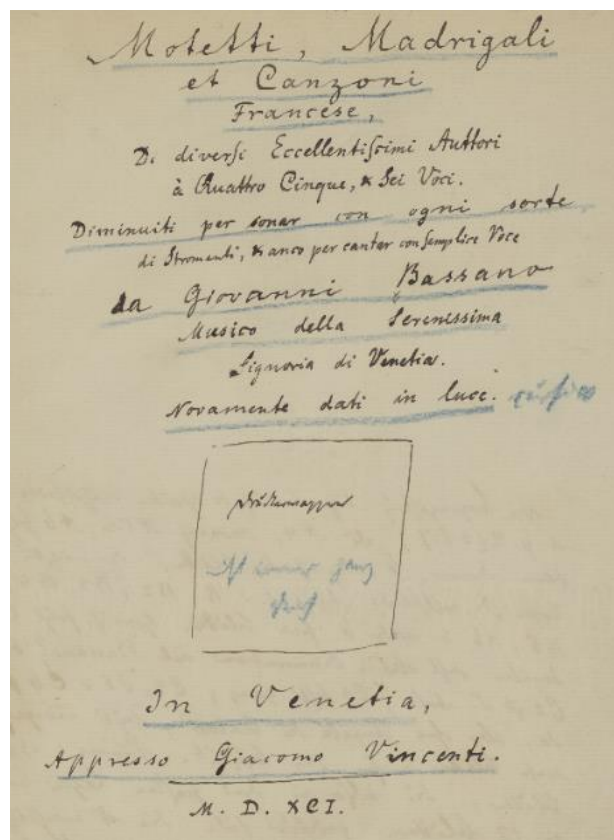 Motetti, Madrigali
et Canzoni
Francese,
Di diversi Eccellentissimi Auttori
à Quattro Cinque, & Sei Voci.
Diminuiti per sonar con ogni sorte
di Stromenti, & anco per cantar con semplice Voce
da Giovanni Bassano
Musico della Serenissima
Signoria di Venetia.
Novamente dati in luce.
In Venetia,
Appresso Giacomo Vincenti.
M. D. XCI.